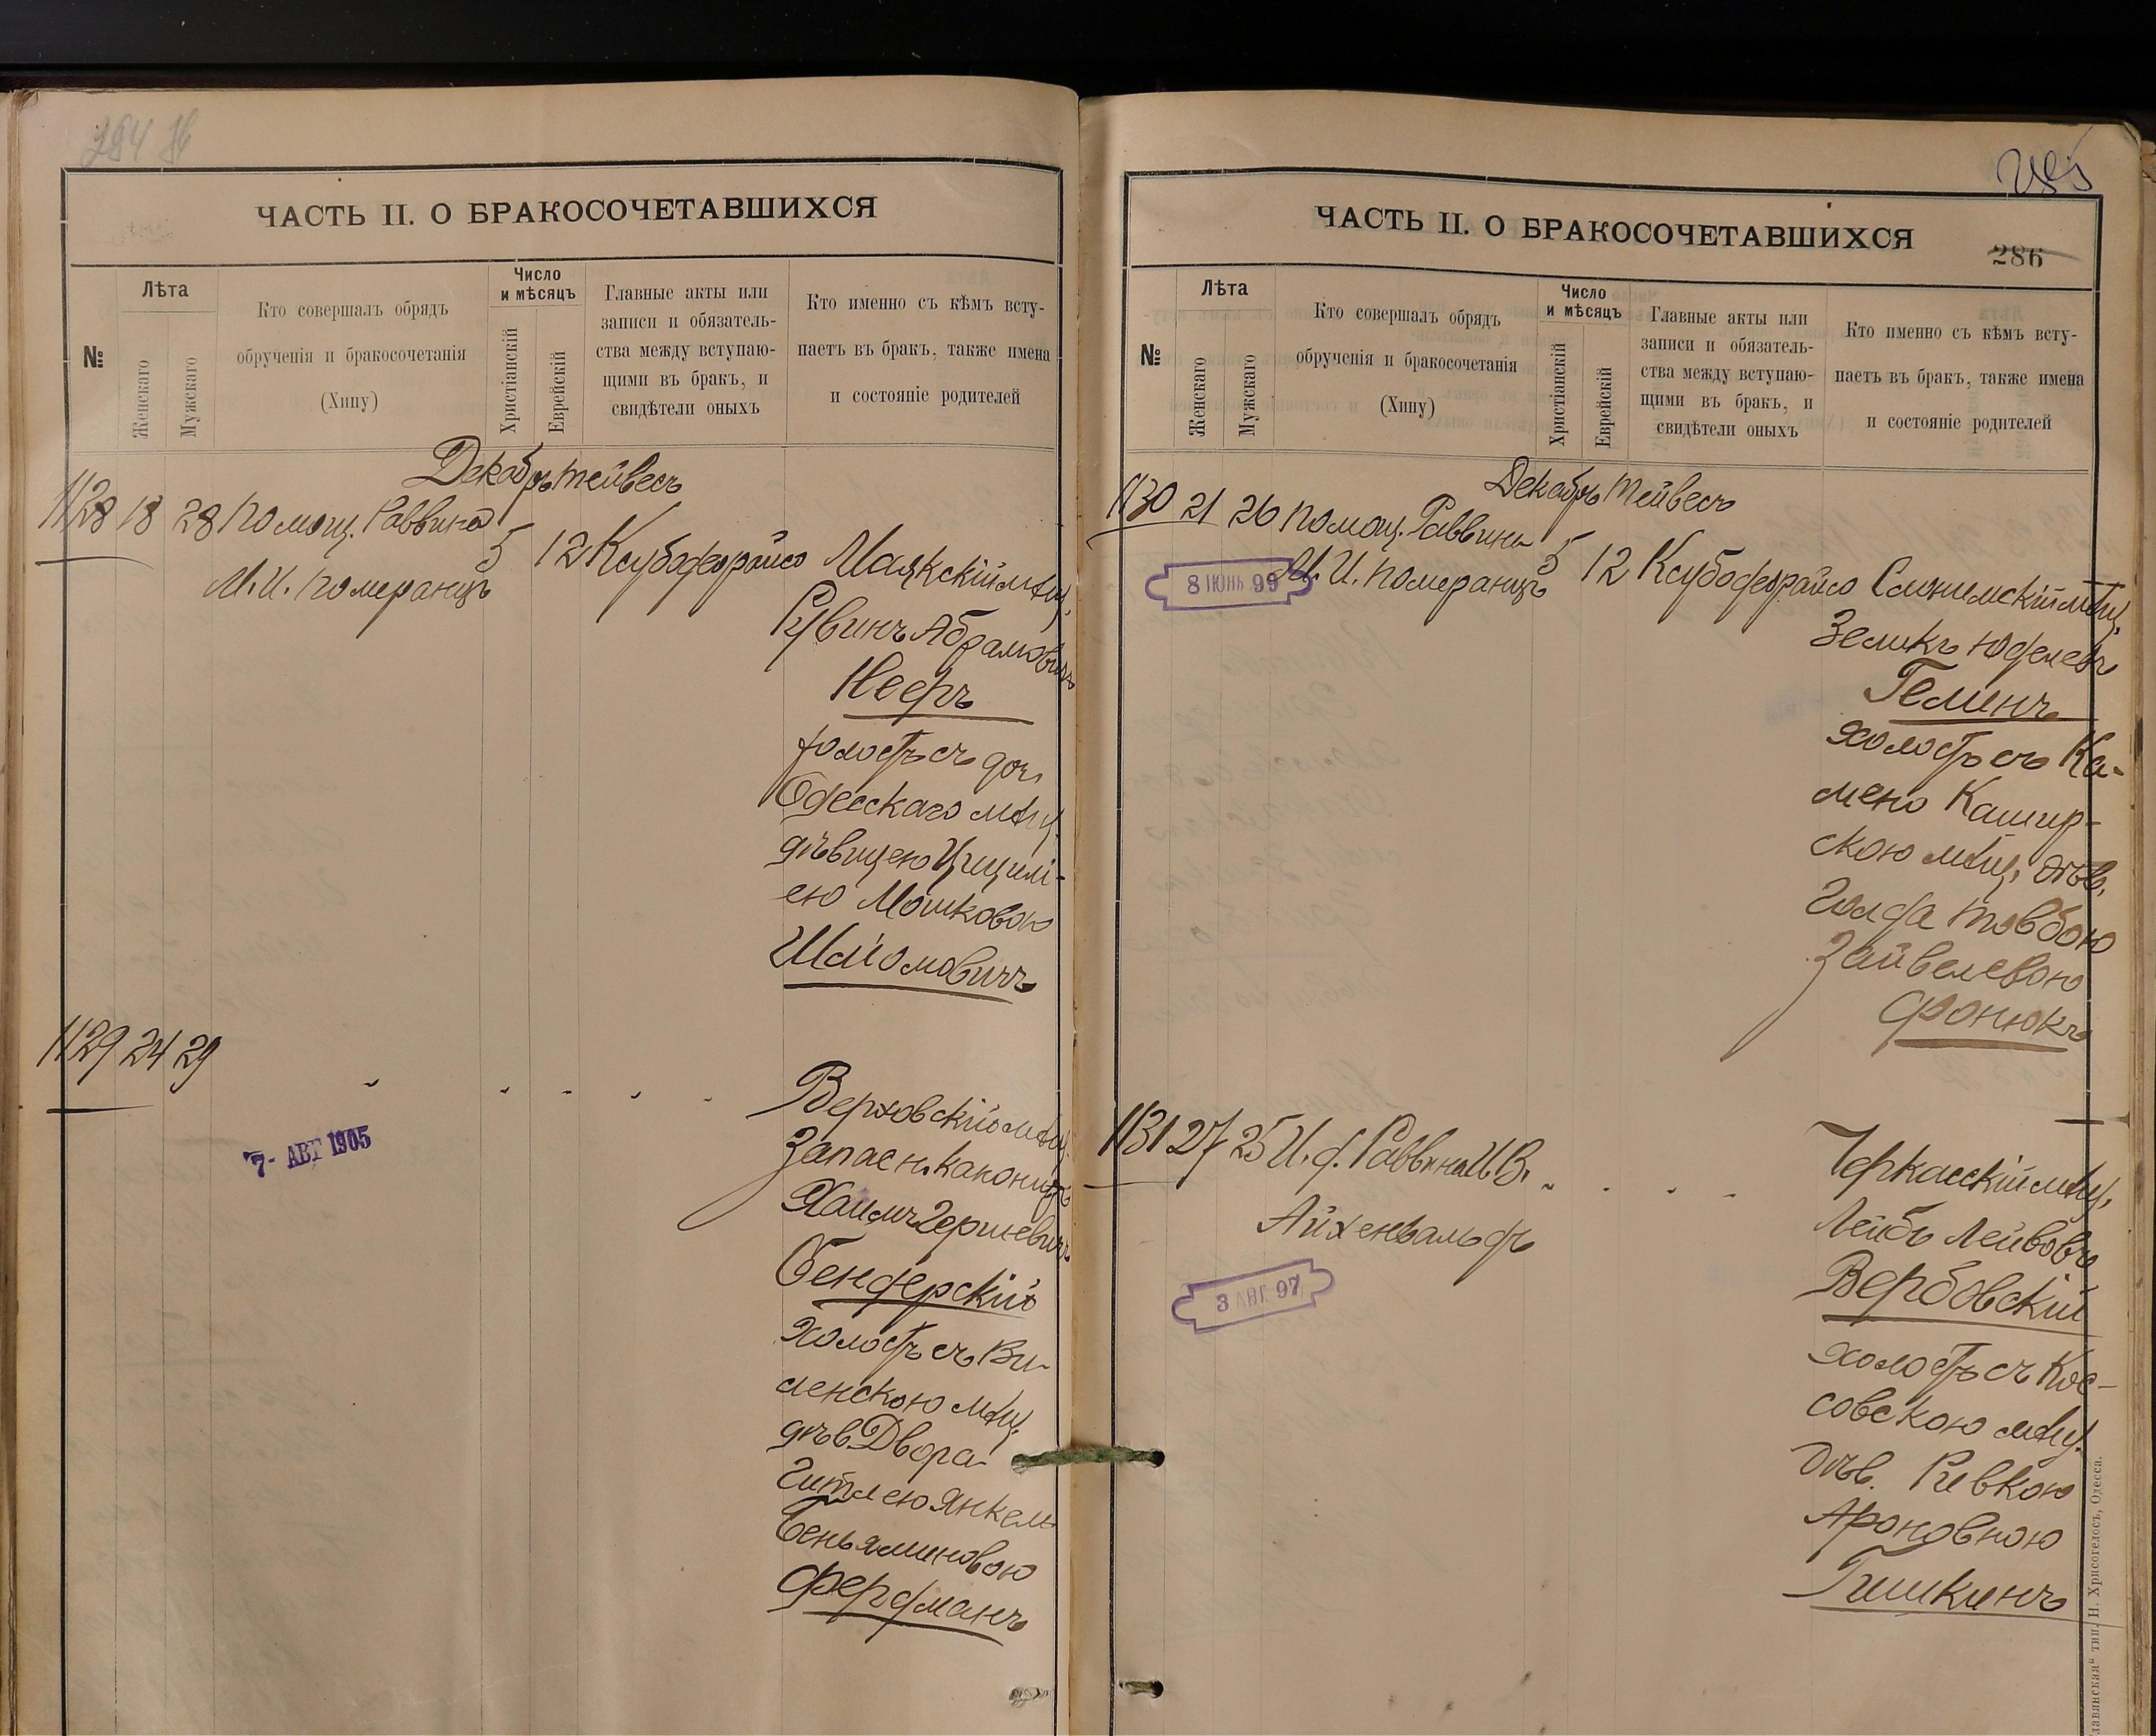 284
ЧАСТЬ II. О БРАКОСОЧЕТАВШИХСЯ
№
Лѣта
Женскаго
Мужскаго
Кто совершалъ обрядъ
обрученія и бракосочетанія
(Хипу)
Число
и мѣсяцъ
Христіанскій
Еврейскій
Главные акты или
записи и обязатель-
ства между вступаю-
щими въ бракъ, и
свидѣтели оныхъ
Кто именно съ кѣмъ всту-
паетъ въ бракъ, также имена
и состояніе родителей
Декабрь Тейвесъ
1128 18 28 Помощ. Раввина
М. И. Померанцъ
5 12 Ксубофорайсо Маякскій мѣщ.
Рувинъ Абрамовичъ
Нееръ
холостъ съ доч.
Одесскаго мѣщ.
дѣвицею Цицилі-
ею Мошковою
Шліомовичъ
1129 24 29
7 - АВГ 1905
Верховскій мѣщ.
запасн. канониръ
Хаимъ Гершевичъ
Бендерскій
холостъ съ Ви-
ленскою мѣщ.
дѣв Двора
Гитлею Янкель
Беньяминовою
Фердманъ
285
ЧАСТЬ II. О БРАКОСОЧЕТАВШИХСЯ
286
№
Лѣта
Женскаго
Мужскаго
Кто совершалъ обрядъ
обрученія и бракосочетанія
(Хипу)
Число
и мѣсяцъ
Христіанскій
Еврейскій
Главные акты или
записи и обязатель-
ства между вступаю-
щими въ бракъ, и
свидѣтели оныхъ
Кто именно съ кѣмъ всту-
паетъ въ бракъ, также имена
и состояніе родителей
Декабрь Тейвесъ
1130 21 26 Помощ. Раввина
М. И. Померанцъ
8 ІЮНЬ 99
5 12 Ксубофорайсо Слонимскій мѣщ.
Зеликъ Юделевъ
Геминъ
холостъ съ Ка-
мено Кашир-
скою мѣщ. дѣв.
Голда Товбою
Зайвелевою
Фонюкъ
1131 27 25 И. д. Раввина И. В.
Айхенвальдъ
3 АВГ. 97
Черкасскій мѣщ.
Лейбъ Лейбовъ
Вербовскій
холостъ съ Кос-
совскою мѣщ.
дѣв. Ривкою
Ароновною
Гишкинъ
тип. Н. Хрисогелосъ, Одесса.